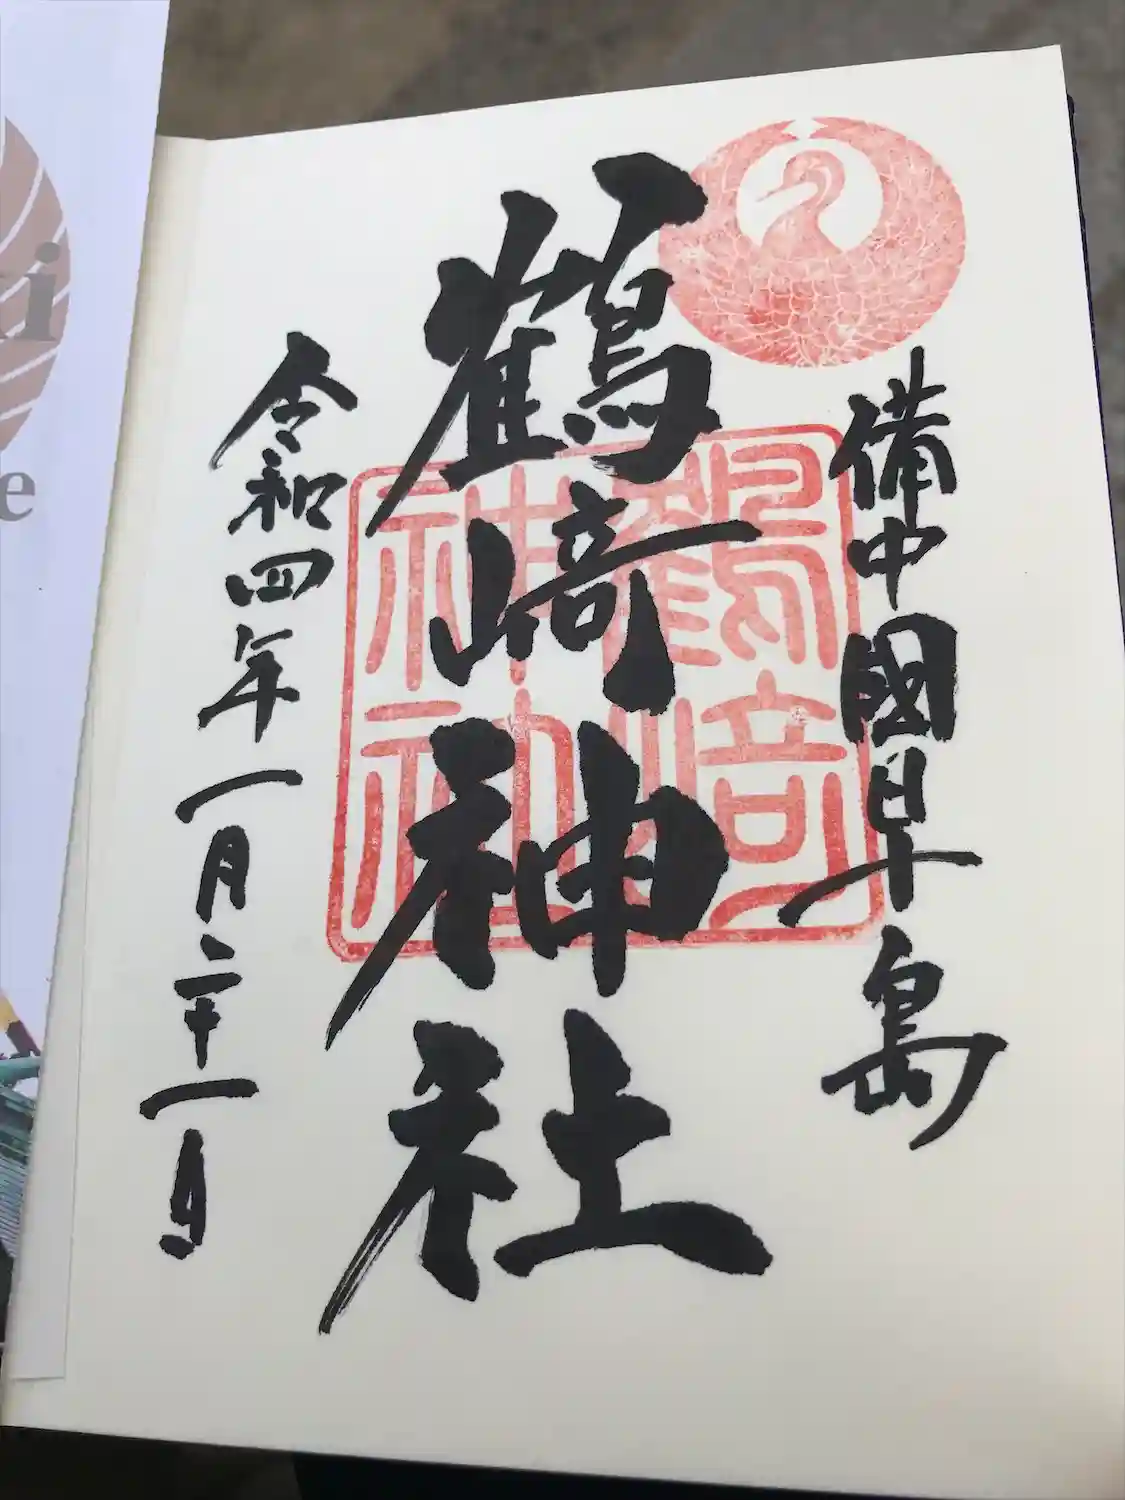 備中國早島
鶴﨑神社
鶴﨑
神社
令和四年一月二十一日
i
e